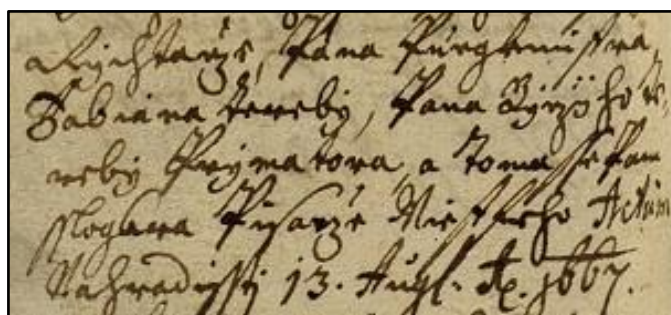 a Rychtarze, Pana Purgkmistra,
Fabiana Kereby, Pana Giržiho Ke
reby Prymatora, a Tomasse Pam
sslogana Pisarže Miestskeho Actum
Nahradissti 13. Augl. Ao. 1667.